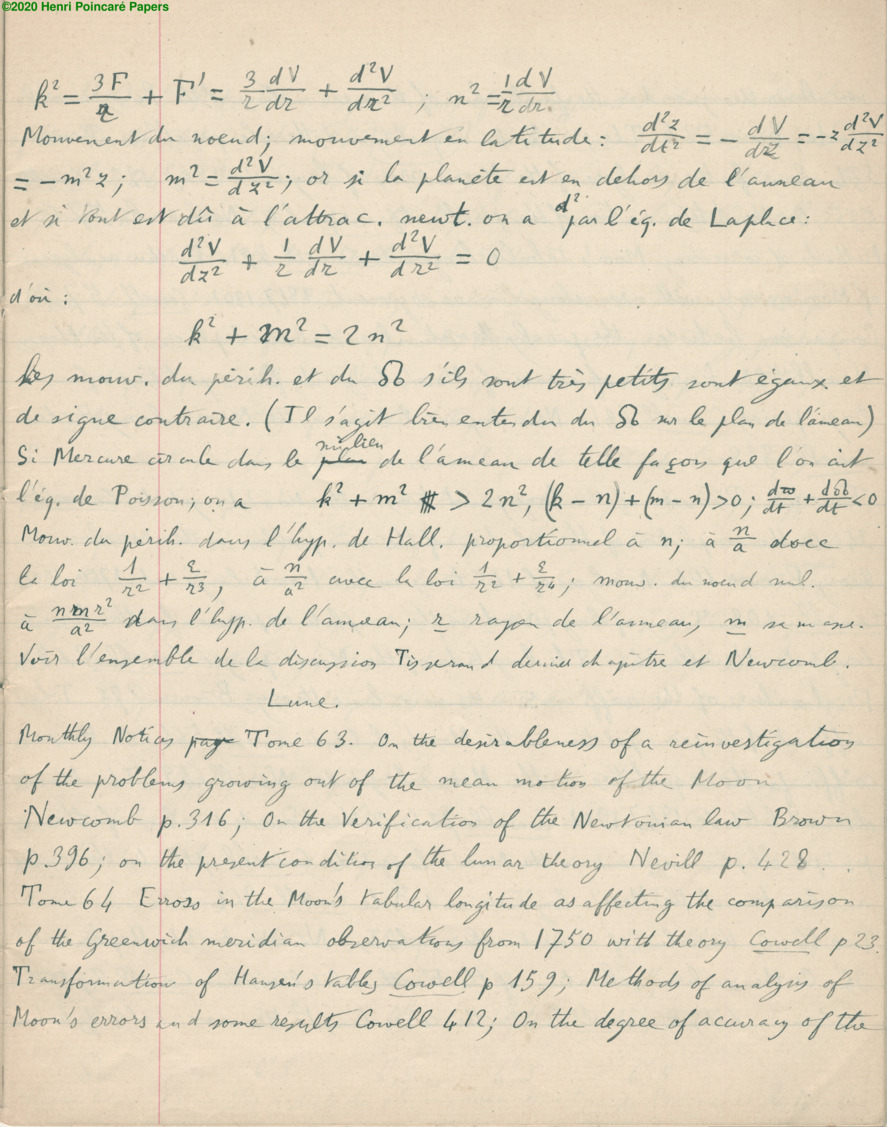 ©2020 Henri Poincaré Papers
k² = 3F/r + F' = 3/r dV/dr + d²V/dr² ; n² = 1/r dV/dr.
Mouvement du noeud; mouvement en latitude : d²z/dt² = - dV/dz = -z d²V/dz²
= -m²z ; m² = d²V/dz² ; or si la planète est en dehors de l'anneau
et si tout est dû à l'attrac. newt. on a par l'éq. de Laplace :
d²V/dz² + 1/r dV/dr + d²V/dr² = 0
d'où :
k² + m² = 2n²
Les mouv. du périh. et du ☊ s'ils sont très petits sont égaux et
de signe contraire. (Il s'agit bien entendu du ☊ sur le plan de l'anneau)
Si Mercure circule dans le milieu de l'anneau de telle façon que l'on ait
l'éq. de Poisson; on a k² + m² > 2n², (k - n) + (m - n) > 0 ; dϖ/dt + d☊/dt < 0
Mouv. du périh. dans l'hyp. de Hall. proportionnel à n; à n/a avec
la loi 1/r² + ε/r³, à n/a² avec la loi 1/r² + ε/r⁴ ; mouv. du noeud nul.
à nmr²/a² dans l'hyp. de l'anneau; r rayon de l'anneau, m sa masse.
Voir l'ensemble de la discussion Tisserand dernier chapitre et Newcomb.
Lune.
Monthly Notices page Tome 63. On the desirableness of a reinvestigation
of the problems growing out of the mean motion of the Moon
Newcomb p.316; On the Verification of the Newtonian law Brown
p.396; on the present condition of the lunar theory Nevill p. 428.
Tome 64 Errors in the Moon's tabular longitude as affecting the comparison
of the Greenwich meridian observations from 1750 with theory Cowell p 23.
Transformation of Hansen's tables Cowell p 159; Methods of analysis of
Moon's errors and some results Cowell 412; On the degree of accuracy of the